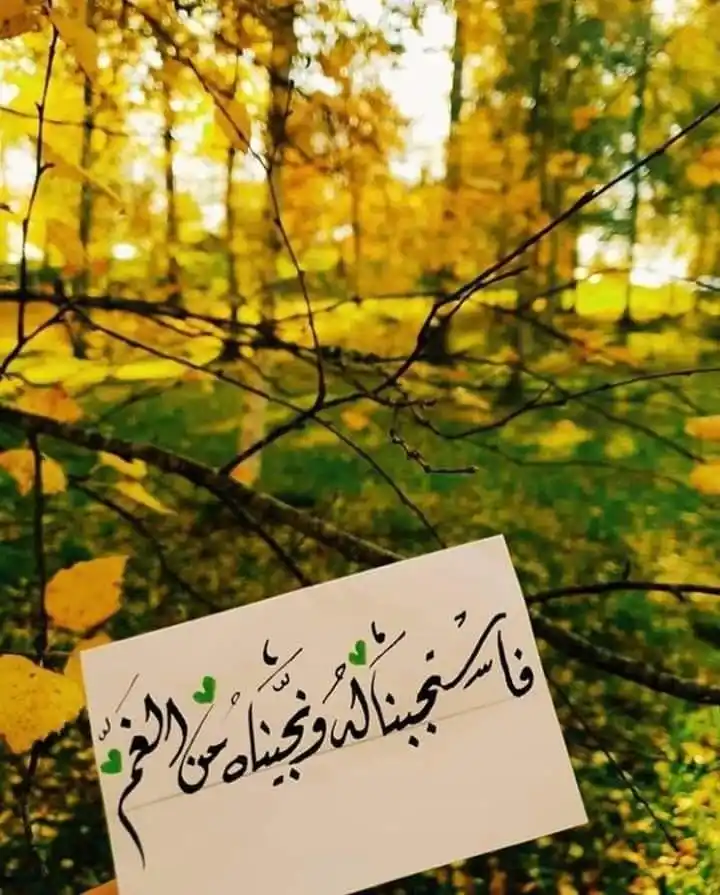 فاستجبنا لهُ ونجّيناهُ منَ الغمِّ